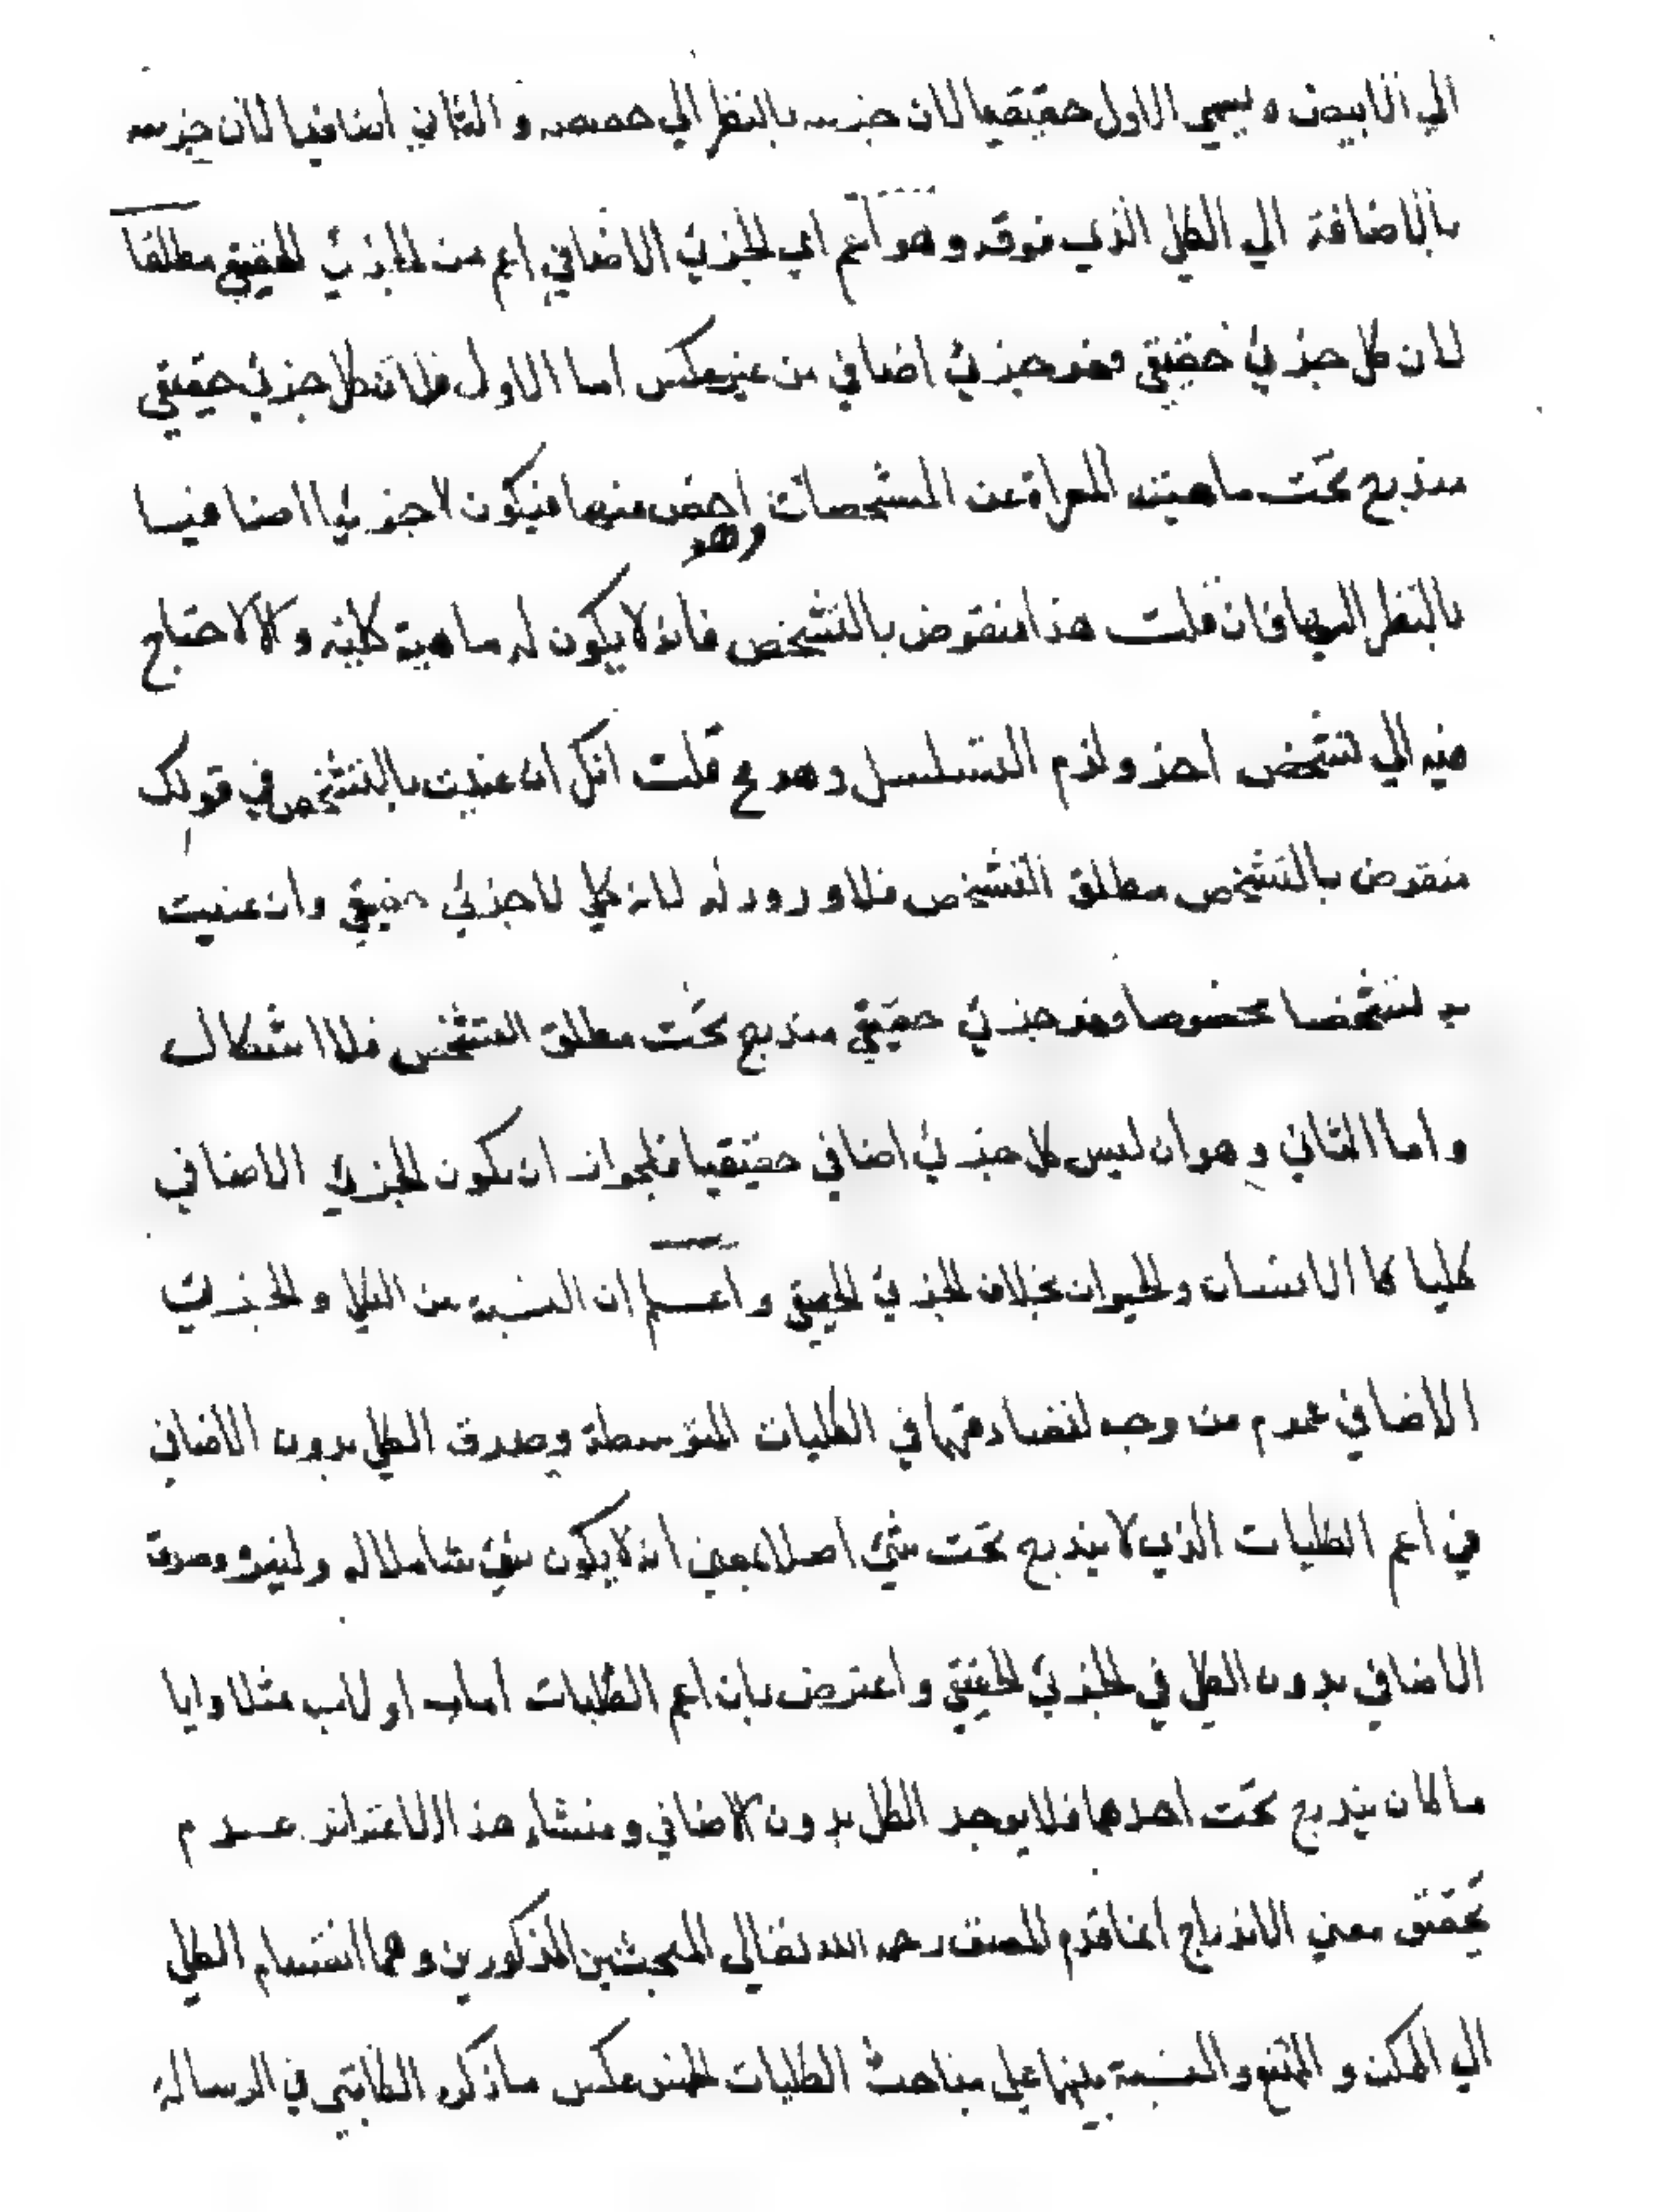 الي الابيض ويسمي الاول حقيقيا لان جزييته بالنظر الي حصصه والثاني اضافيا لان جزييته
بالاضافة الي الكلي الذي فوقه وهو اعم اي الجزئي الاضافي اعم من الجزئي الحقيقي مطلقا
لان كل جزئي حقيقي فهو جزئي اضافي من غير عكس اما الاول فلان كل جزئي حقيقي
مندرج تحت ماهيته المعراة عن المشخصات وهو اخص منها فيكون لا جزئيا اضافيا
بالنظر اليها فان قلت هذا منقوض بالتشخص فانه لا يكون له ماهية كلية والا لاحتاج
فيه الي تشخص اخر ولزم التسلسل وهو مح قلت انك ان عنيت بالتشخص في قولك
منقوض بالتشخص مطلق التشخص فلا ورود له لانه كلي لا جزئي حقيقي وان عنيت
به تشخصا مخصوصا فهو جزئي حقيقي مندرج تحت مطلق التشخص فلا اشكال
واما الثاني وهو ان ليس كل جزئي اضافي حقيقيا فلجواز ان يكون الجزئي الاضافي
كليا كالانسان والحيوان بخلاف الجزئي الحقيقي واعلم ان النسبة بين الكلي والجزئي
الاضافي عموم من وجه لتصادقهما في الكليات المتوسطة وصدق الكلي بدون الاضافي
في اعم الكليات الذي لا يندرج تحت شئ اصلا بمعني انه لا يكون شئ شاملا له ولغيره وصدق
الاضافي بدون الكلي في الجزئي الحقيقي واعترض بان اعم الكليات اما ب او لاب مثلا وايا
ما كان يندرج تحت احدهما فلا يوجد الكلي بدون الاضافي ومنشاء هذا الاعتراض عدم
تحقق معني الاندراج انما قدم المصنف رحمه الله تعالي المبحثين المذكورين وهما انقسام الكلي
الي الممكن والممتنع والنسبة بينهما علي مباحث الكليات الخمس عكس ما ذكره الكاتبي في الرسالة